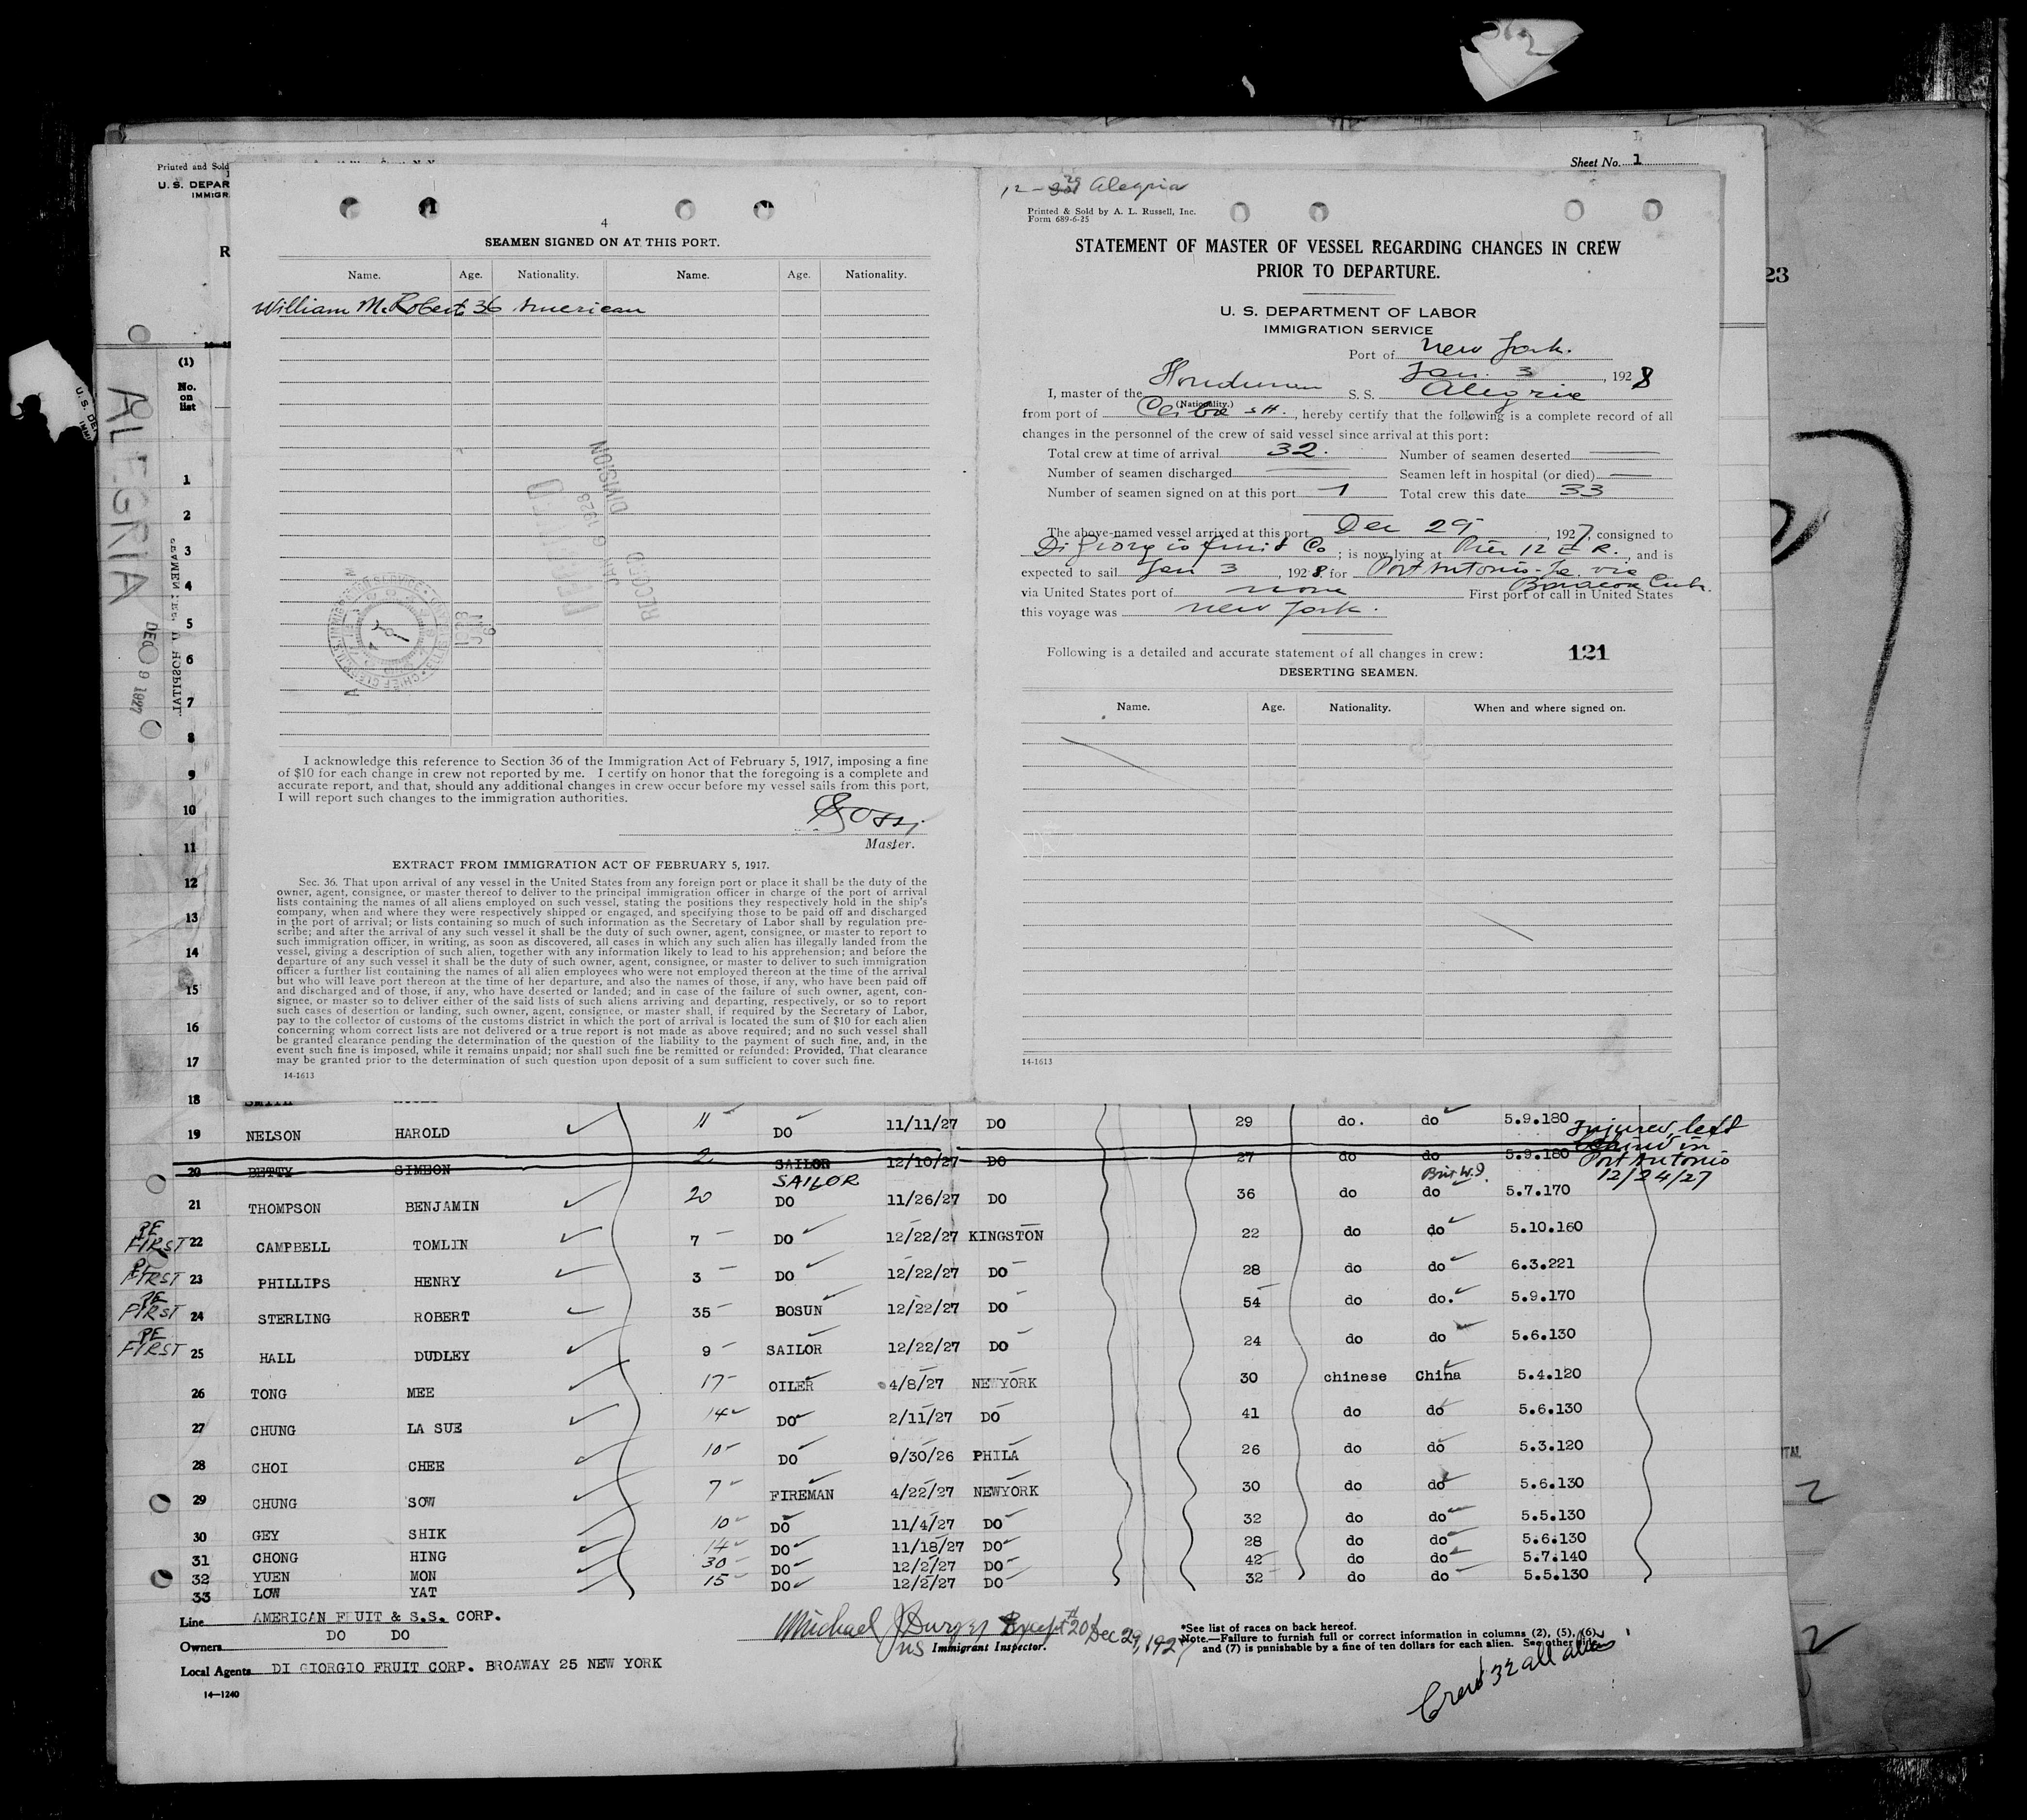 Sheet No. 1
Printed and Sold
U. S. DEPAR
IMMIGR
R
23
(1)
No.
on
list
ALEGRIA
DEC 9 1927
4
SEAMEN SIGNED ON AT THIS PORT.
Name. Age. Nationality. Name. Age. Nationality.
William McRoberts 36 American
RECEIVED
JAN 6 1928
DIVISION
RECORD
I acknowledge this reference to Section 36 of the Immigration Act of February 5, 1917, imposing a fine
of $10 for each change in crew not reported by me. I certify on honor that the foregoing is a complete and
accurate report, and that, should any additional changes in crew occur before my vessel sails from this port,
I will report such changes to the immigration authorities.
Master.
EXTRACT FROM IMMIGRATION ACT OF FEBRUARY 5, 1917.
Sec. 36. That upon arrival of any vessel in the United States from any foreign port or place it shall be the duty of the
owner, agent, consignee, or master thereof to deliver to the principal immigration officer in charge of the port of arrival
lists containing the names of all aliens employed on such vessel, stating the positions they respectively hold in the ship's
company, when and where they were respectively shipped or engaged, and specifying those to be paid off and discharged
in the port of arrival; or lists containing so much of such information as the Secretary of Labor shall by regulation pre-
scribe; and after the arrival of any such vessel it shall be the duty of such owner, agent, consignee, or master to report to
such immigration officer, in writing, as soon as discovered, all cases in which any such alien has illegally landed from the
vessel, giving a description of such alien, together with any information likely to lead to his apprehension; and before the
departure of any such vessel it shall be the duty of such owner, agent, consignee, or master to deliver to such immigration
officer a further list containing the names of all alien employees who were not employed thereon at the time of the arrival
but who will leave port thereon at the time of her departure, and also the names of those, if any, who have been paid off
and discharged and of those, if any, who have deserted or landed; and in case of the failure of such owner, agent, con-
signee, or master so to deliver either of the said lists of such aliens arriving and departing, respectively, or so to report
such cases of desertion or landing, such owner, agent, consignee, or master shall, if required by the Secretary of Labor,
pay to the collector of customs of the customs district in which the port of arrival is located the sum of $10 for each alien
concerning whom correct lists are not delivered or a true report is not made as above required; and no such vessel shall
be granted clearance pending the determination of the question of the liability to the payment of such fine, and, in the
event such fine is imposed, while it remains unpaid; nor shall such fine be remitted or refunded: Provided, That clearance
may be granted prior to the determination of such question upon deposit of a sum sufficient to cover such fine.
14-1613
12-29 Alegria
Printed & Sold by A. L. Russell, Inc.
Form 689-6-25
STATEMENT OF MASTER OF VESSEL REGARDING CHANGES IN CREW
PRIOR TO DEPARTURE.
U. S. DEPARTMENT OF LABOR
IMMIGRATION SERVICE
Port of New York.
Jan. 3, 1928
I, master of the Honduran (Nationality.) S. S. Alegria
from port of Ceiba S H., hereby certify that the following is a complete record of all
changes in the personnel of the crew of said vessel since arrival at this port:
Total crew at time of arrival 32. Number of seamen deserted
Number of seamen discharged Seamen left in hospital (or died)
Number of seamen signed on at this port 1 Total crew this date 33
The above-named vessel arrived at this port Dec 29, 1927, consigned to
Di Giorgio Fruit Co; is now lying at Pier 12 E R., and is
expected to sail Jan 3, 1928. for Port Antonio Ja. via
Baracoa Cuba.
via United States port of none First port of call in United States
this voyage was New York.
Following is a detailed and accurate statement of all changes in crew: 121
DESERTING SEAMEN.
Name. Age. Nationality. When and where signed on.
14-1613
1
2
3
4
5
6
7
8
9
10
11
12
13
14
15
16
17
18 SMITH
19 NELSON HAROLD 11 DO 11/11/27 DO 29 do. do 5.9.180
20 BETTY SIMEON 2 SAILOR 12/10/27 DO 27 do do 5.9.180 Injured, left behind in Port Antonio 12/24/27
SAILOR Brit W.I.
21 THOMPSON BENJAMIN 20 DO 11/26/27 DO 36 do do 5.7.170
PE FIRST 22 CAMPBELL TOMLIN 7 DO 12/22/27 KINGSTON 22 do do 5.10.160
PE FIRST 23 PHILLIPS HENRY 3 DO 12/22/27 DO 28 do do 6.3.221
PE FIRST 24 STERLING ROBERT 35 BOSUN 12/22/27 DO 54 do do. 5.9.170
PE FIRST 25 HALL DUDLEY 9 SAILOR 12/22/27 DO 24 do do 5.6.130
26 TONG MEE 17 OILER 4/8/27 NEWYORK 30 chinese China 5.4.120
27 CHUNG LA SUE 14 DO 2/11/27 DO 41 do do 5.6.130
28 CHOI CHEE 10 DO 9/30/26 PHILA 26 do do 5.3.120
29 CHUNG SOW 7 FIREMAN 4/22/27 NEWYORK 30 do do 5.6.130
30 GEY SHIK 10 DO 11/4/27 DO 32 do do 5.5.130
31 CHONG HING 14 DO 11/18/27 DO 28 do do 5.6.130
32 YUEN MON 30 DO 12/2/27 DO 42 do do 5.7.140
33 LOW YAT 15 DO 12/2/27 DO 32 do do 5.5.130
Line AMERICAN FRUIT & S.S. CORP.
Owners DO DO
Local Agents DI GIORGIO FRUIT CORP. BROAWAY 25 NEW YORK
14—1240
Michael J Except #20 Dec 29, 1927
Immigrant Inspector.
*See list of races on back hereof.
Note.—Failure to furnish full or correct information in columns (2), (5), (6),
and (7) is punishable by a fine of ten dollars for each alien. See other
Crew 32 all aliens